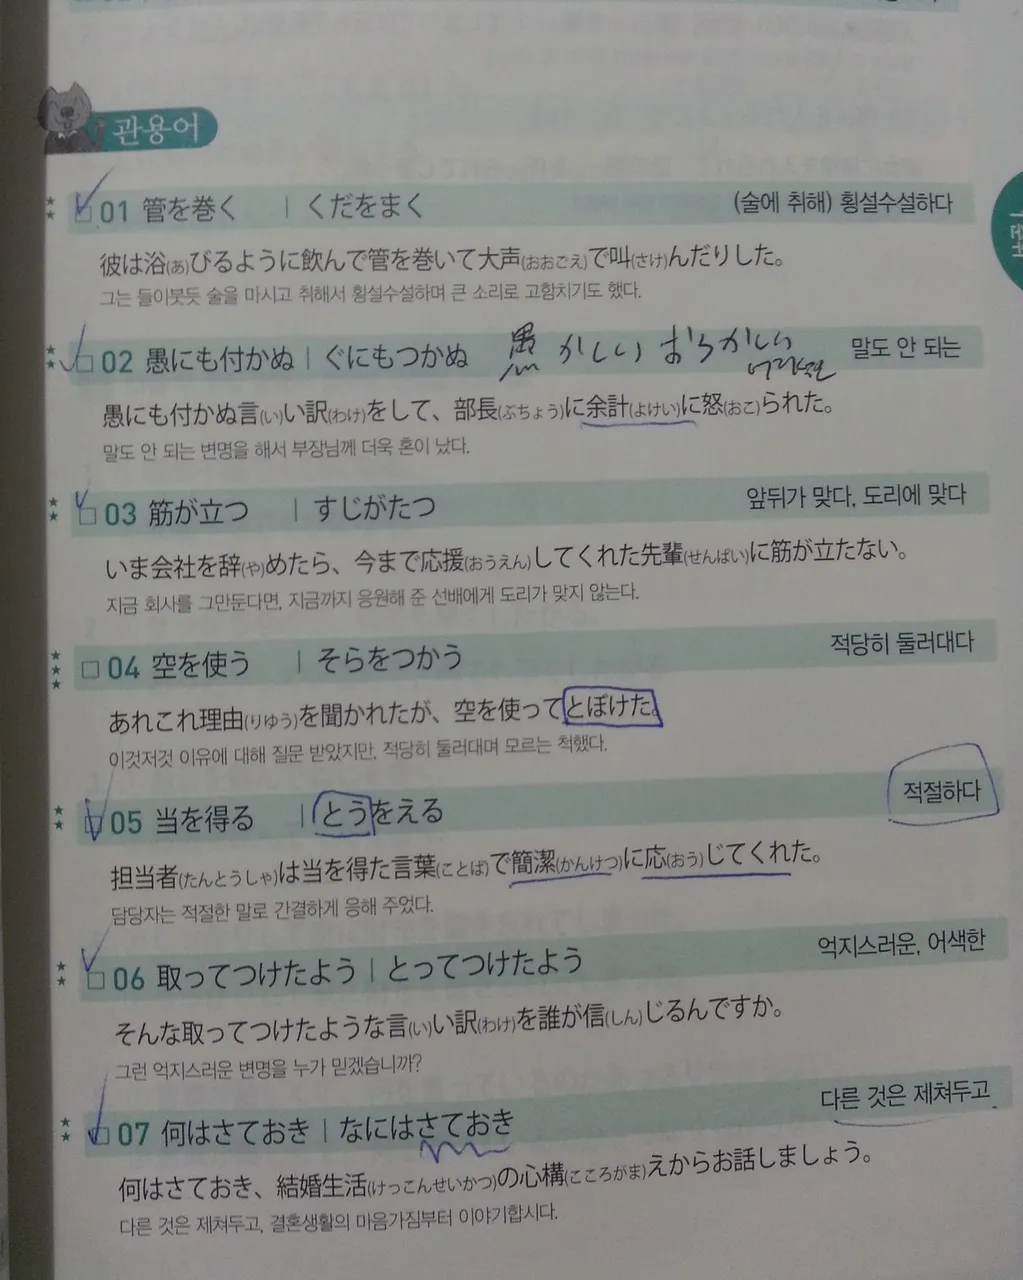 관용어
01 管を巻く | くだをまく (술에 취해) 횡설수설하다
彼は浴(あ)びるように飲んで管を巻いて大声(おおごえ)で叫(さけ)んだりした。
그는 들이붓듯 술을 마시고 취해서 횡설수설하며 큰 소리로 고함치기도 했다.
02 愚にも付かぬ | ぐにもつかぬ 愚かしい おろかしい 말도 안 되는
愚にも付かぬ言(い)い訳(わけ)をして、部長(ぶちょう)に余計(よけい)に怒(おこ)られた。
말도 안 되는 변명을 해서 부장님께 더욱 혼이 났다.
03 筋が立つ | すじがたつ 앞뒤가 맞다, 도리에 맞다
いま会社を辞(や)めたら、今まで応援(おうえん)してくれた先輩(せんぱい)に筋が立たない。
지금 회사를 그만둔다면, 지금까지 응원해 준 선배에게 도리가 맞지 않는다.
04 空を使う | そらをつかう 적당히 둘러대다
あれこれ理由(りゆう)を聞かれたが、空を使ってとぼけた。
이것저것 이유에 대해 질문 받았지만, 적당히 둘러대며 모르는 척했다.
05 当を得る | とうをえる 적절하다
担当者(たんとうしゃ)は当を得た言葉(ことば)で簡潔(かんけつ)に応(おう)じてくれた。
담당자는 적절한 말로 간결하게 응해 주었다.
06 取ってつけたよう | とってつけたよう 억지스러운, 어색한
そんな取ってつけたような言(い)い訳(わけ)を誰が信(しん)じるんですか。
그런 억지스러운 변명을 누가 믿겠습니까?
07 何はさておき | なにはさておき 다른 것은 제쳐두고
何はさておき、結婚生活(けっこんせいかつ)の心構(こころがま)えからお話しましょう。
다른 것은 제쳐두고, 결혼생활의 마음가짐부터 이야기합시다.